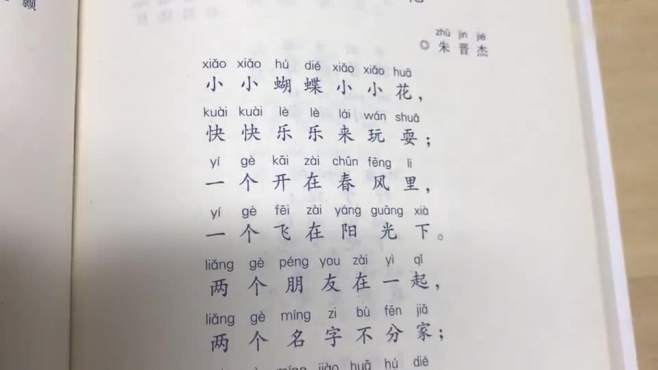 颖
zhū jìn jié
◎ 朱晋杰
xiǎo xiǎo hú dié xiǎo xiǎo huā
小小蝴蝶小小花，
kuài kuài lè lè lái wán shuǎ
快快乐乐来玩耍；
yí gè kāi zài chūn fēng li
一个开在春风里，
yí gè fēi zài yáng guāng xià
一个飞在阳光下。
liǎng gè péng you zài yì qǐ
两个朋友在一起，
liǎng gè míng zi bù fēn jiā
两个名字不分家；
míng jiào huā hú dié